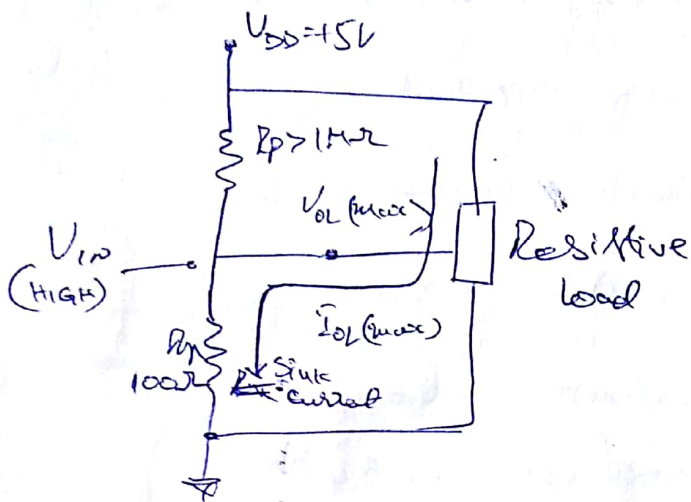 V_DD=+5V
Rp>1MΩ
V_OL(max)
V_IN
(HIGH)
Resistive
Load
I_OL(max)
Rn
100Ω
Sink
current